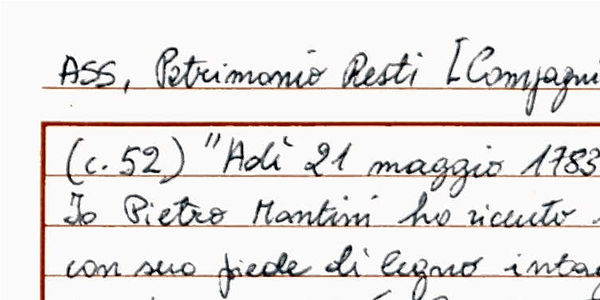 ASS, Patrimonio Resti [Compagni
(c. 52) "Adì 21 maggio 1783
Io Pietro Mantini ho ricevuto
con suo piede di legno intag